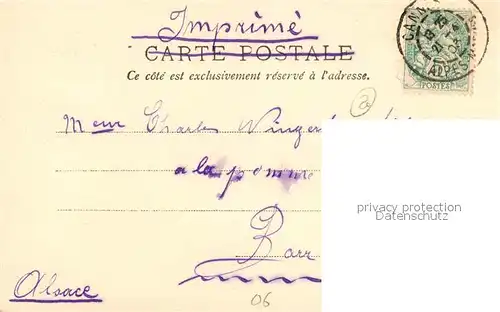 Imprimé
CARTE POSTALE
Ce côté est exclusivement réservé à l'adresse.
CANN
ALPES
POSTES
Charles
a la pomme
Barr
Alsace
06
privacy protection
Datenschutz